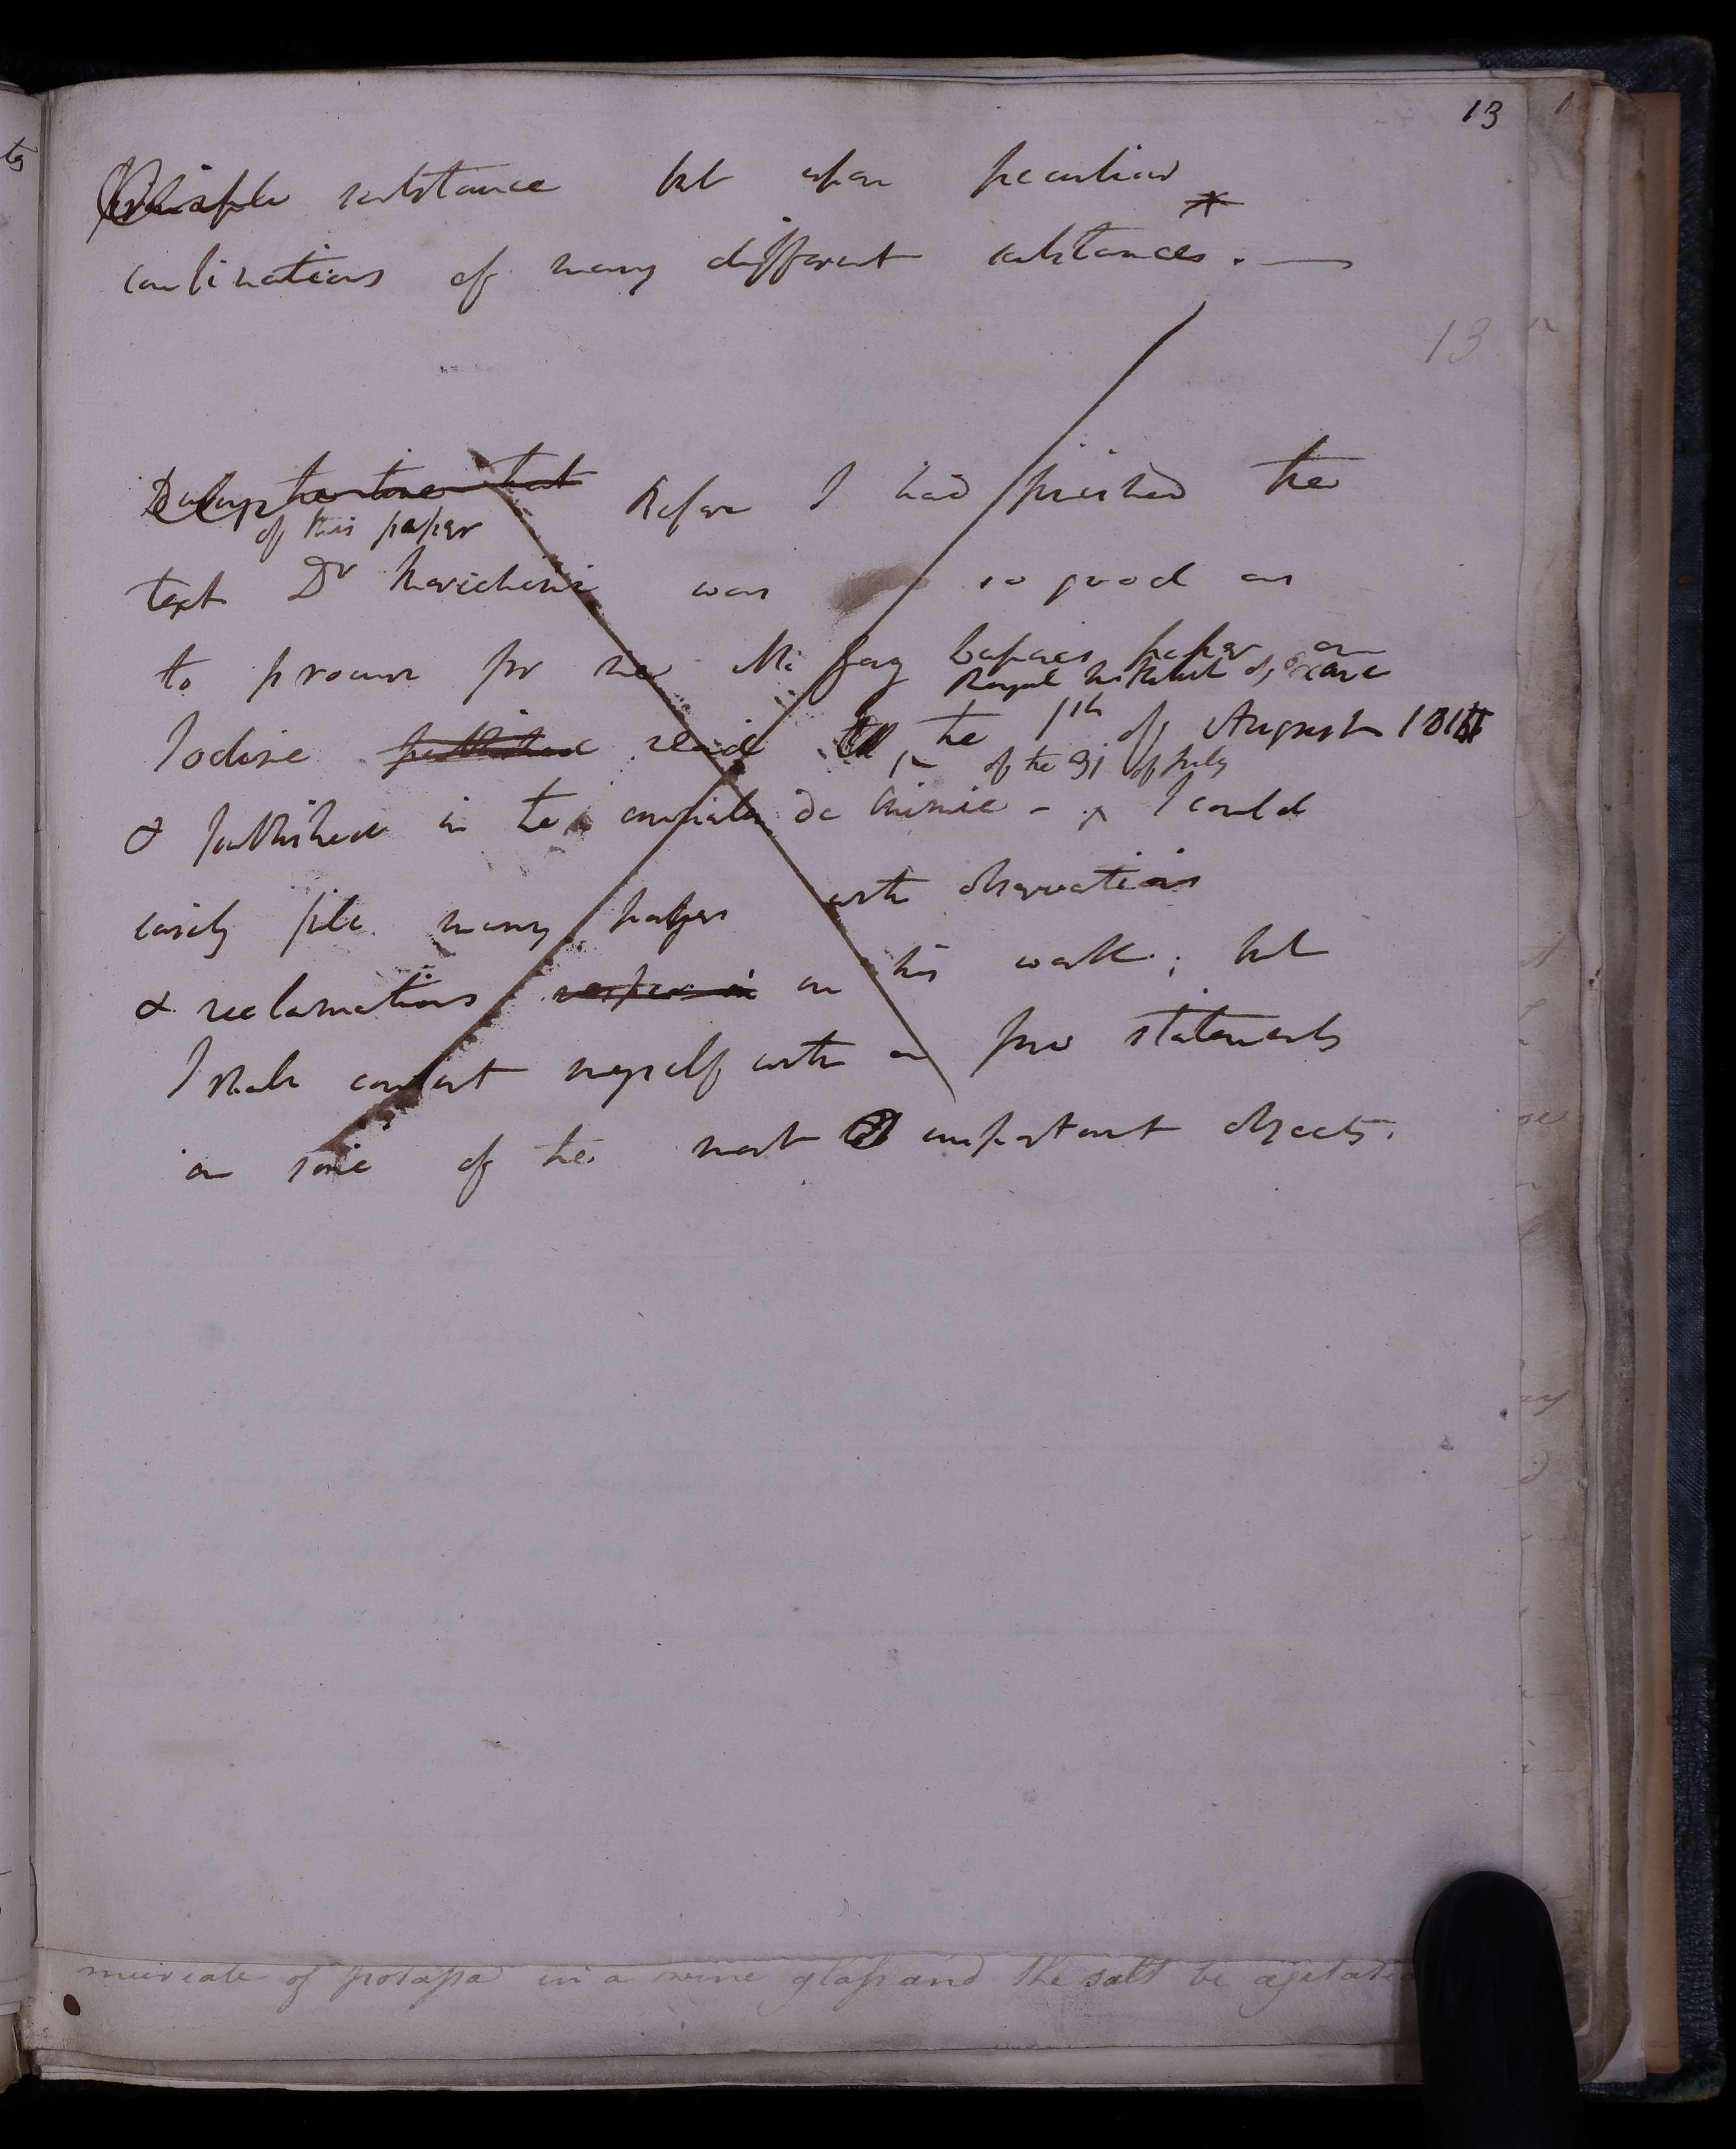 13
substance but upon peculiar
combinations of many different substances . — *
13
Before I had finished the
of this paper
text Dr Morichini was so good as
to procure for me M. Gay Lussacs paper on
Royal Institut of France
Iodine published read the 1st of August 1814
of the 31 of July
& published in the annales de Chimie - I could
easily fill many pages with observations
& reclamations on his work ; but
I shall content myself with a few statements
on some of the most important objects.
muriate of potassa in a wine glass and the salt be agitated